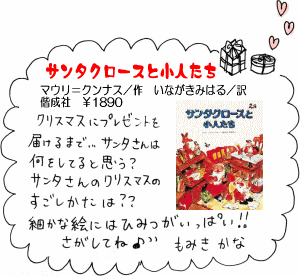 サンタクロースと小人たち
マウリ=クンナス/作 いながきみはる/訳
偕成社 ¥1890
クリスマスにプレゼントを
届けるまで‥サンタさんは
何をしてると思う?
サンタさんのクリスマスの
すごしかたは??
細かな絵にはひみつがいっぱい!!
さがしてね♪ もみき かな
サンタクロースと
小人たち